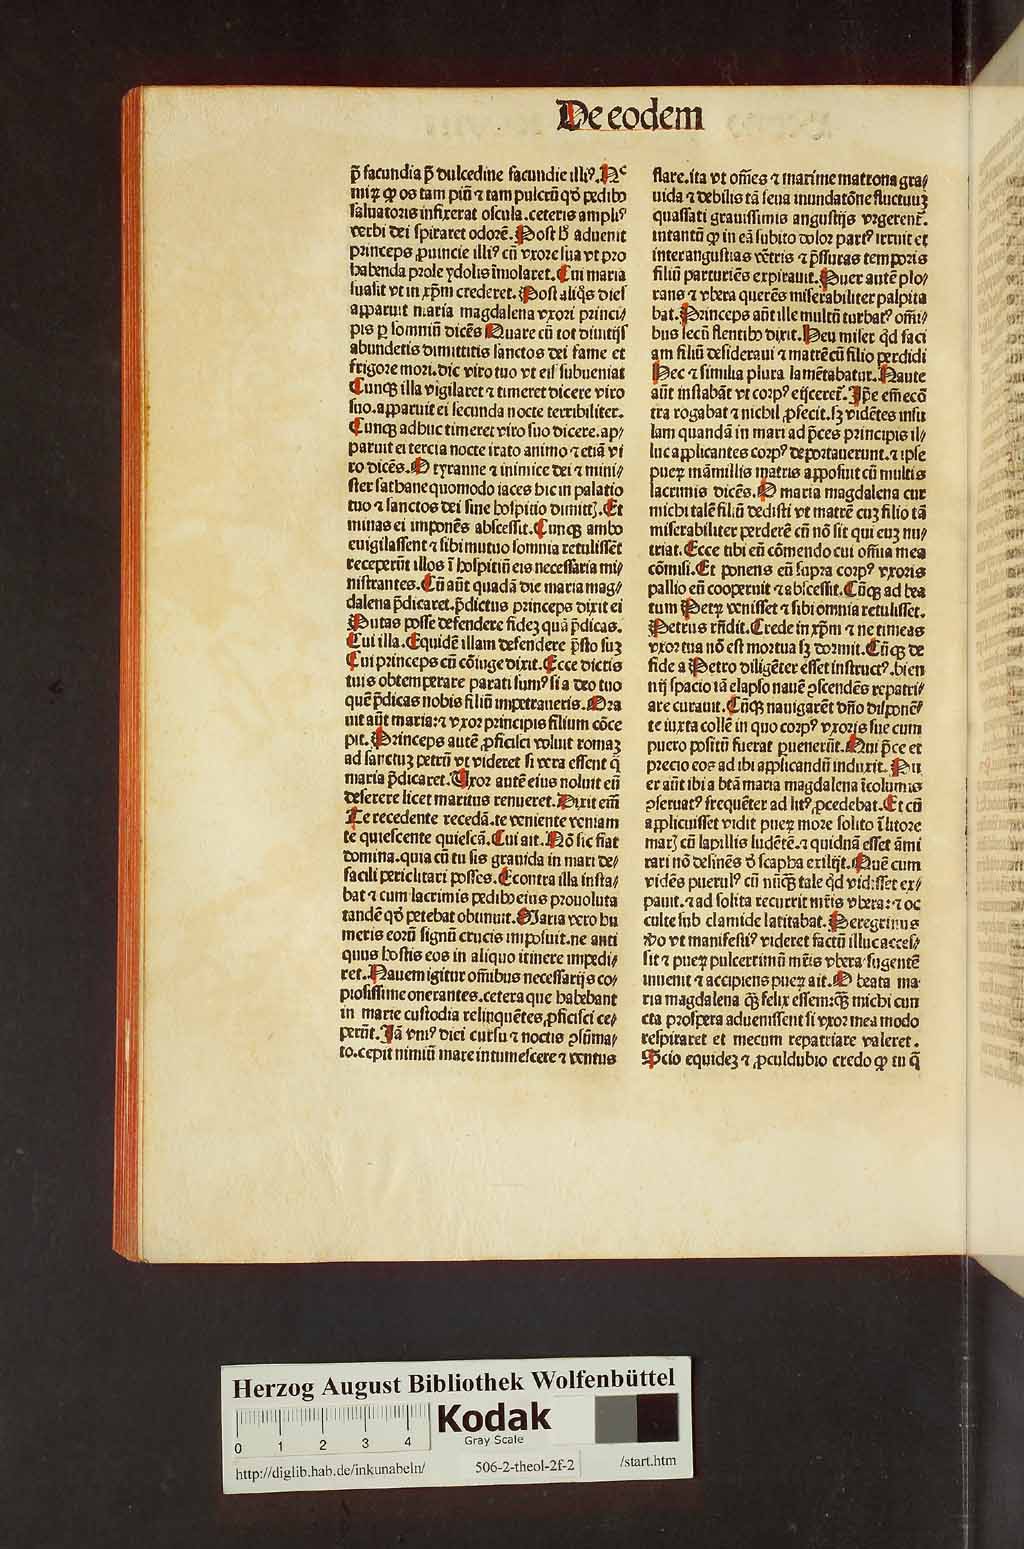 De eodem
p̄ facundia p̄ dulcedine facundie illiꝰ. Nᶜ
miꝝ ꝙ os tam piū ⁊ tam pulcrū qđ pedibꝰ
saluatoris infixerat oscula. ceteris ampliꝰ
verbi dei spiraret odorē. Post h̄ aduenit
princeps ꝓuincie illiꝰ cū vxore sua vt pro
habenda prole ydolis īmolaret. Cui maria
suasit vt in xp̄m crederet. Post aliq̄s dies
apparuit maria magdalena vxori princi/
pis ꝑ somniū dicēs Quare cū tot diuitijs
abundetis dimittitis sanctos dei fame et
frigore mori. dic viro tuo vt eis subueniat
Cunqꝫ illa vigilaret ⁊ timeret dicere viro
suo. apparuit ei secunda nocte terribiliter.
Cunqꝫ adhuc timeret viro suo dicere. ap/
paruit ei tercia nocte irato animo ⁊ etiā vi
ro dicēs. O tyranne ⁊ inimice dei ⁊ mini/
ster sathane quomodo iaces hic in palatio
tuo ⁊ sanctos dei sine hospitio dimittꝭ. Et
minas ei imponēs abscessit. Cunqꝫ ambo
euigilassent ⁊ sibi mutuo somnia retulissēt
receperūt illos ī hospitiū eis necessaria mi/
nistrantes. Cū aūt quadā die maria mag/
dalena p̄dicaret. p̄dictus princeps dixit ei
Putas posse defendere fideꝫ quā p̄dicas.
Cui illa. Equidē illam defendere p̄sto suꝫ
Cui princeps cū cōiuge dixit. Ecce dictis
tuis obtemperare parati sumꝰ si a deo tuo
quē p̄dicas nobis filiū impetraueris. Ora
uit aūt maria: ⁊ vxor principis filium cōce
pit. Princeps autē ꝓficisci voluit romaꝫ
ad sanctuꝫ petrū vt videret si vera essent q̄
maria p̄dicaret. Uxor autē eius noluit eū
deserere licet maritus renueret. Dixit em̄
Te recedente recedā. te veniente veniam
te quiescente quiescā. Cui ait. Nō sic fiat
domina. quia cū tu sis grauida in mari de/
facili periclitari posses. Econtra illa insta/
bat ⁊ cum lacrimis pedibꝰ eius prouoluta
tandē qđ petebat obtinuit. Maria vero hu
meris eorū signū crucis imposuit. ne anti
quus hostis eos in aliquo itinere impedi/
ret. Nauem igitur om̄ibus necessarijs co/
piosissime onerantes. cetera que habebant
in marie custodia relinquētes ꝓficisci ce/
perūt. Jā vniꝰ diei cursu ⁊ noctis ꝯsūma/
to. cepit nimiū mare intumescere ⁊ ventus
flare. ita vt om̄es ⁊ maxime matrona gra/
uida ⁊ debilis tā seua inundatōne fluctuuꝫ
quassati grauissimis angustijs vrgerent̄.
intantū ꝙ in eā subito dolor partꝰ irruit et
inter angustias vētris ⁊ p̄ssuras temporis
filiū parturiēs expirauit. Puer autē plo/
rans ⁊ vbera querēs miserabiliter palpita
bat. Princeps aūt ille multū turbatꝰ om̄i/
bus secū flentibꝰ dixit. Heu miser qđ faci
am filiū desideraui ⁊ matrē cū filio perdidi
Hec ⁊ similia plura lamētabatur. Naute
aūt instabāt vt corpꝰ eijceret̄. Ip̄e em̄ ecō
tra rogabat ⁊ nichil ꝓfecit. sꝫ vidētes insu
lam quandā in mari ad p̄ces principis il/
luc applicantes corpꝰ deportauerunt. ⁊ ipse
pueꝝ māmillis matris apposuit cū multis
lacrimis dicēs. O maria magdalena cur
michi talē filiū dedisti vt matrē cuꝫ filio tā
miserabiliter perderē cū nō sit qui euꝫ nu/
triat. Ecce tibi eū cōmendo cui om̄ia mea
cōmisi. Et ponens eū supra corpꝰ vxoris
pallio eū cooperuit ⁊ abscessit. Cūqꝫ ad bea
tum Petꝝ venisset ⁊ sibi omnia retulisset.
Petrus rn̄dit. Crede in xp̄m ⁊ ne timeas
vxor tua nō est mortua sꝫ dormit. Cūqꝫ de
fide a Petro diligēter esset instructꝰ. bien
nij spacio iā elapso nauē ꝯscendēs repatri/
are curauit. Cūqꝫ nauigarēt dn̄o disponē/
te iuxta collē in quo corpꝰ vxoris sue cum
puero positū fuerat ꝑuenerūt. Qui p̄ce et
precio eos ad ibi applicandū induxit. Pu
er aūt ibi a btā maria magdalena īcolumis
ꝯseruatꝰ frequēter ad litꝰ ꝓcedebat. Et cū
applicuisset vidit pueꝝ more solito ī litore
marꝭ cū lapillis ludētē. ⁊ quidnā esset āmi
rari nō desinēs d̄ scapha exilijt. Quē cum
vidēs puerulꝰ cū nūqꝫ tale qđ vidisset ex/
pauit. ⁊ ad solita recurrit mr̄is vbera: ⁊ oc
culte sub clamide latitabat. Peregrinus
v̄o vt manifestiꝰ videret factū illuc acces/
sit ⁊ pueꝝ pulcerrimū mr̄is vbera sugentē
inuenit ⁊ accipiens pueꝝ ait. O beata ma
ria magdalena qꝫ felix essem: qꝫ michi cun
cta prospera aduenissent si vxor mea modo
respiraret et mecum repatriare valeret.
Scio equideꝫ ⁊ ꝓculdubio credo ꝙ tu q̄
Herzog August Bibliothek Wolfenbüttel
0 1 2 3 4
Kodak
Gray Scale
http://diglib.hab.de/inkunabeln/ 506-2-theol-2f-2 /start.htm